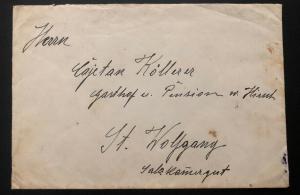 Herrn
Cajetan Köllerer
Gasthof u. Pension w. Hirsch
St. Wolfgang
Salzkamergut